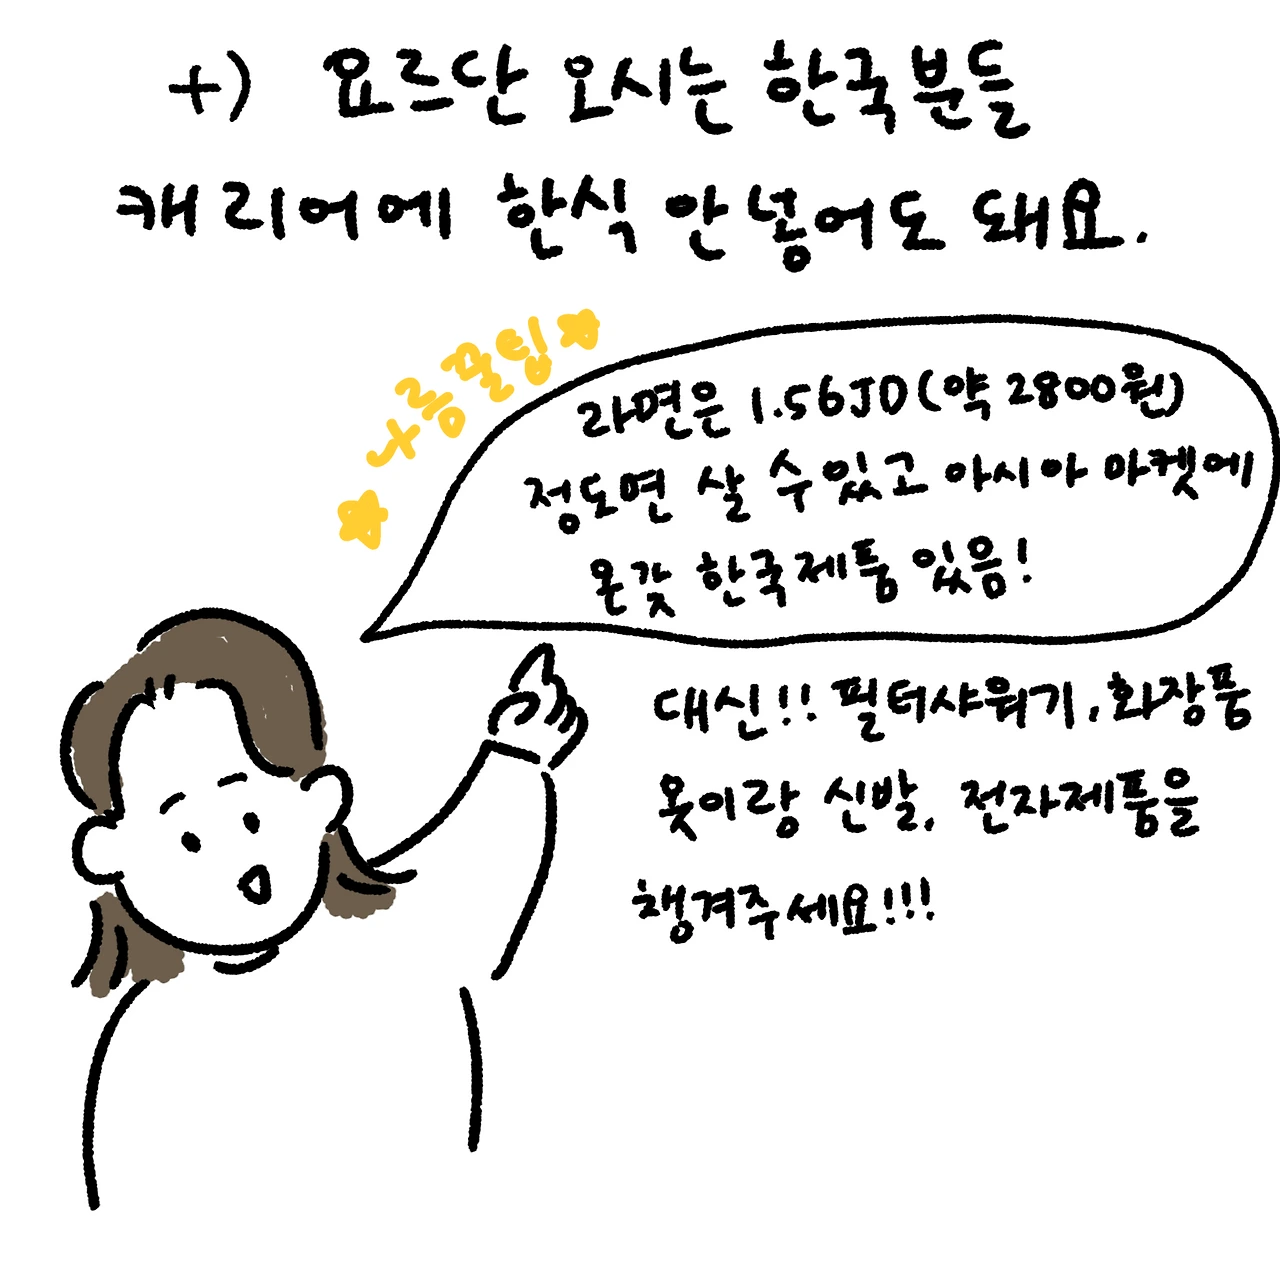 +) 요르단 오시는 한국분들
캐리어에 한식 안 넣어도 돼요.
나름 꿀팁
라면은 1.56JD(약 2800원)
정도면 살 수 있고 아시아 마켓에
온갖 한국제품 있음!
대신!! 필터샤워기, 화장품
옷이랑 신발, 전자제품을
챙겨주세요!!!